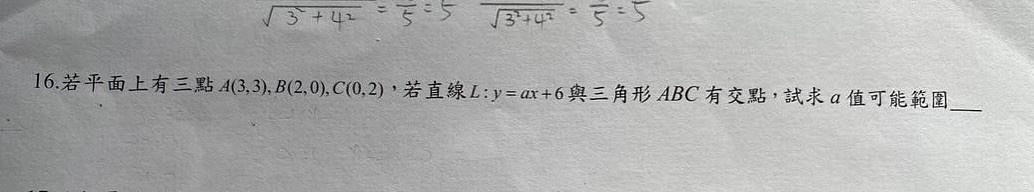 √3²+4² = 5 = 5 √3²+4² = 5 = 5
16.若平面上有三點 A(3,3), B(2,0), C(0,2)，若直線 L : y = ax+6 與三角形 ABC 有交點，試求 a 值可能範圍___